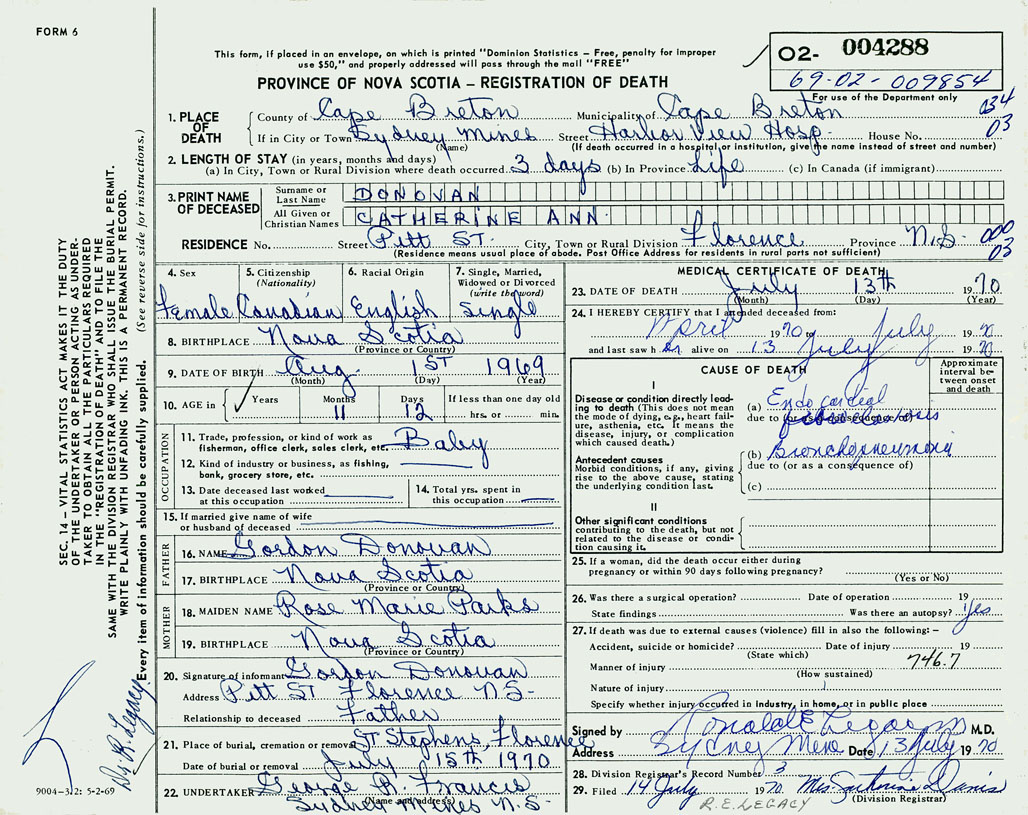 FORM 6
This form, if placed in an envelope, on which is printed "Dominion Statistics – Free, penalty for improper
use $50," and properly addressed will pass through the mail "FREE"
O2- 004288
69-02-009854
For use of the Department only
PROVINCE OF NOVA SCOTIA – REGISTRATION OF DEATH
034
03
1. PLACE OF DEATH
County of Cape Breton Municipality of Cape Breton
If in City or Town Sydney Mines Street Harbor View Hosp. House No.
(Name) (If death occurred in a hospital or institution, give the name instead of street and number)
2. LENGTH OF STAY (in years, months and days)
(a) In City, Town or Rural Division where death occurred 3 days (b) In Province Life (c) In Canada (if immigrant)
3. PRINT NAME OF DECEASED
Surname or Last Name DONOVAN
All Given or Christian Names CATHERINE ANN
RESIDENCE No. Street Pitt ST. City, Town or Rural Division Florence Province N.S. 000
03
(Residence means usual place of abode. Post Office Address for residents in rural parts not sufficient)
4. Sex Female
5. Citizenship (Nationality) Canadian
6. Racial Origin English
7. Single, Married, Widowed or Divorced (write the word) Single
8. BIRTHPLACE Nova Scotia
(Province or Country)
9. DATE OF BIRTH Aug. 1ST 1969
(Month) (Day) (Year)
10. AGE in Years Months 11 Days 12 If less than one day old
hrs. or min.
OCCUPATION
11. Trade, profession, or kind of work as
fisherman, office clerk, sales clerk, etc. Baby
12. Kind of industry or business, as fishing,
bank, grocery store, etc.
13. Date deceased last worked
at this occupation
14. Total yrs. spent in
this occupation
15. If married give name of wife
or husband of deceased
FATHER
16. NAME Gordon Donovan
17. BIRTHPLACE Nova Scotia
(Province or Country)
MOTHER
18. MAIDEN NAME Rose Marie Parks
19. BIRTHPLACE Nova Scotia
(Province or Country)
20. Signature of informant Gordon Donovan
Address Pitt ST Florence N.S-
Relationship to deceased Father
21. Place of burial, cremation or removal ST Stephens, Florence
Date of burial or removal July 15th 1970
22. UNDERTAKER George R. Francis
(Name and address)
Sydney Mines N.S-
MEDICAL CERTIFICATE OF DEATH
23. DATE OF DEATH July 13th 1970
(Month) (Day) (Year)
24. I HEREBY CERTIFY that I attended deceased from:
April 1970 to July 1970
and last saw her alive on 13 July 1970
CAUSE OF DEATH
Approximate interval between onset and death
I
Disease or condition directly leading to death (This does not mean the mode of dying, e.g., heart failure, asthenia, etc. It means the disease, injury, or complication which caused death.)
(a) Endocardial
due to (or as a consequence of)
Antecedent causes
Morbid conditions, if any, giving rise to the above cause, stating the underlying condition last.
(b) Bronchopneumonia
due to (or as a consequence of)
(c)
II
Other significant conditions
contributing to the death, but not related to the disease or condition causing it.
25. If a woman, did the death occur either during
pregnancy or within 90 days following pregnancy?
(Yes or No)
26. Was there a surgical operation? Date of operation 19
State findings Was there an autopsy? Yes
27. If death was due to external causes (violence) fill in also the following: –
Accident, suicide or homicide? Date of injury 19
(State which)
746.7
Manner of injury
(How sustained)
Nature of injury
Specify whether injury occurred in industry, in home, or in public place
Signed by M.D.
Address Sydney Date 13 July 1970
28. Division Registrar's Record Number 3
29. Filed 14 July 1970 Mrs.
(Division Registrar)
R.E. LEGACY
SEC. 14 – VITAL STATISTICS ACT MAKES IT THE DUTY
OF THE UNDERTAKER OR PERSON ACTING AS UNDERTAKER
TO OBTAIN ALL THE PARTICULARS REQUIRED
IN THE "REGISTRATION OF DEATH" AND TO FILE THE
SAME WITH THE DIVISION REGISTRAR WHO SHALL ISSUE THE BURIAL PERMIT.
WRITE PLAINLY WITH UNFADING INK. THIS IS A PERMANENT RECORD.
Every item of information should be carefully supplied. (See reverse side for instructions.)
Dr. R. Legacy
9004-3.2: 5-2-69